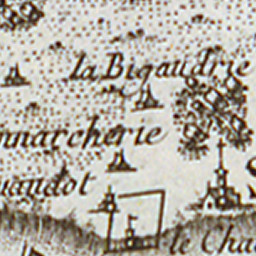 la Bigaudrie
nnarcherie
uandot
le Cha